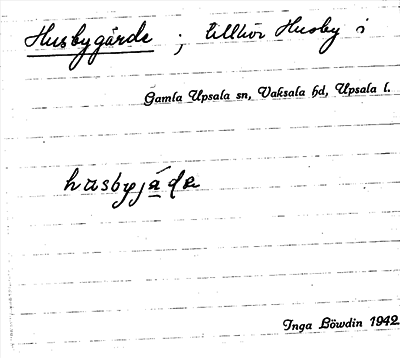 Husbygärde ; tillhör Husby i
Gamla Upsala sn, Vaksala hd, Upsala l.
husbyjäda
Inga Löwdin 1942